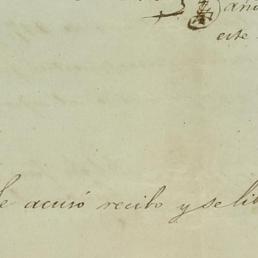 año
este
se acusó recibo y se li